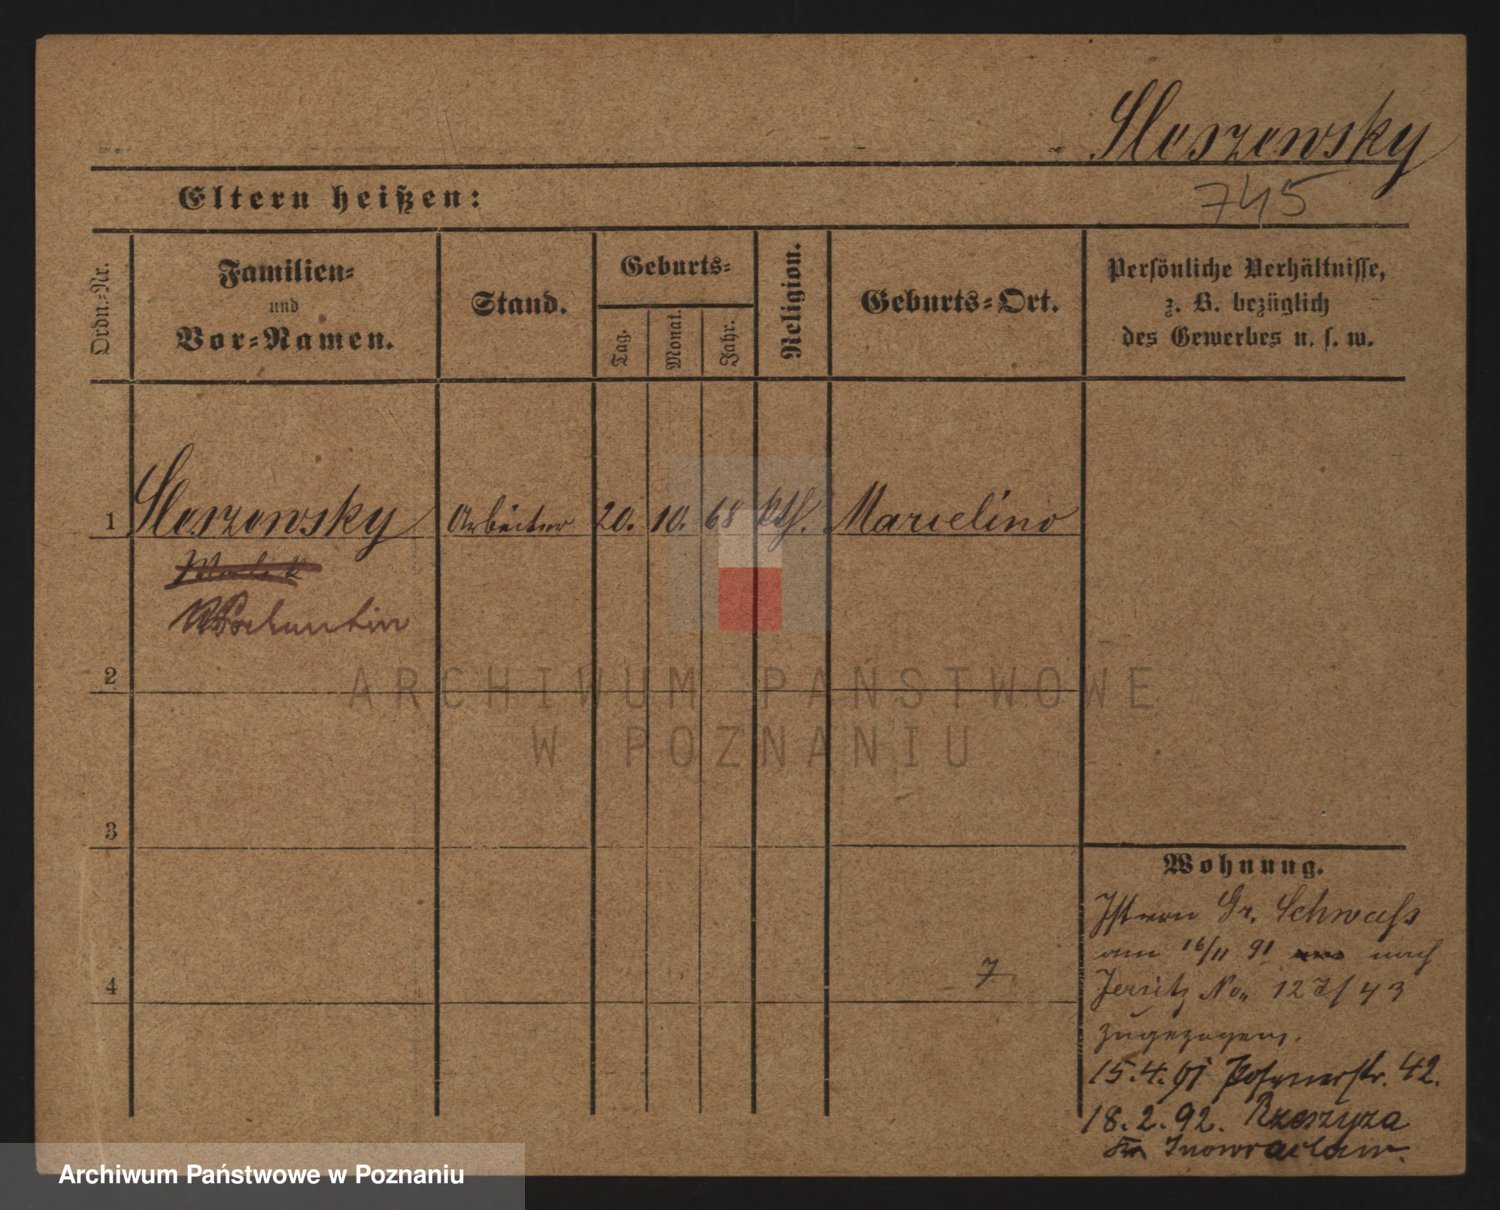 Sloszewsky
745
Eltern heißen:
Ordn.-Nr.
Familien-
und
Vor-Namen.
Stand.
Geburts-
Tag.
Monat.
Jahr.
Religion.
Geburts-Ort.
Persönliche Verhältnisse,
z. B. bezüglich
des Gewerbes u. s. w.
1 Sloszewsky Arbeiter 20. 10. 68 kth. Marcelino
2
3
4
7
Wohnung.
Ist von Gr. Schwass
am 16/11 91 nach
Jersitz No. 127/43
zugezogen.
15.4.91 Posenerstr. 42.
18.2.92.
Inowraclaw.
ARCHIWUM PAŃSTWOWE
W POZNANIU
Archiwum Państwowe w Poznaniu